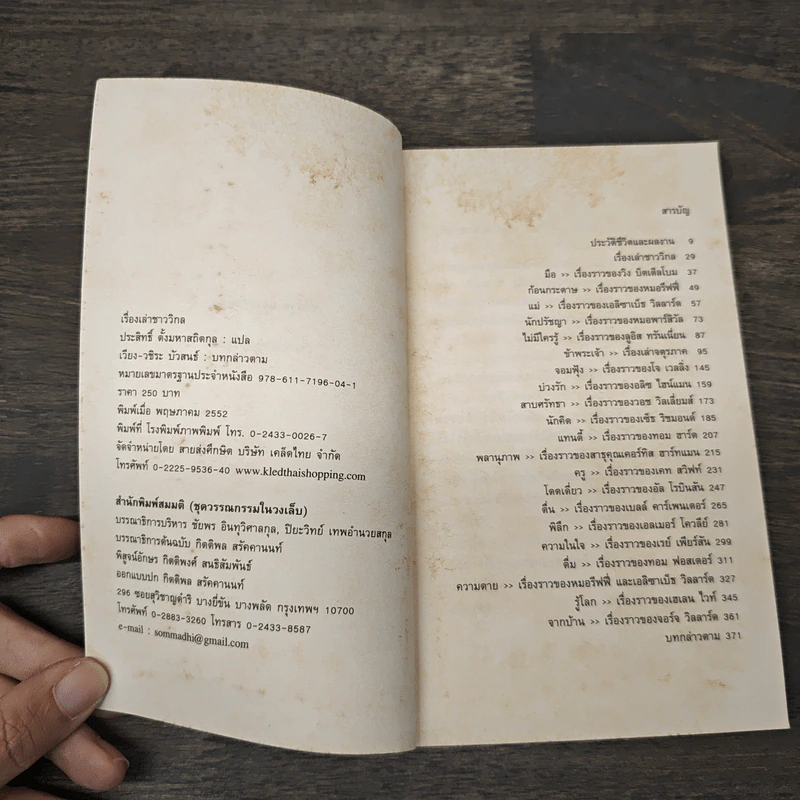 เรื่องเล่าชาววิกล
ประสิทธิ์ ตั้งมหาสถิตกุล : แปล
เวียง-วชิระ บัวสนธ์ : บทกล่าวตาม
หมายเลขมาตรฐานประจำหนังสือ 978-611-7196-04-1
ราคา 250 บาท
พิมพ์เมื่อ พฤษภาคม 2552
พิมพ์ที่ โรงพิมพ์ภาพพิมพ์ โทร. 0-2433-0026-7
จัดจำหน่ายโดย สายส่งศึกษิต บริษัท เคล็ดไทย จำกัด
โทรศัพท์ 0-2225-9536-40 www.kledthaishopping.com
สำนักพิมพ์สมมติ (ชุดวรรณกรรมในวงเล็บ)
บรรณาธิการบริหาร ชัยพร อินทุวิศาลกุล, ปิยะวิทย์ เทพอำนวยสกุล
บรรณาธิการต้นฉบับ กิตติพล สรัคคานนท์
พิสูจน์อักษร กิตติพงศ์ สนธิสัมพันธ์
ออกแบบปก กิตติพล สรัคคานนท์
296 ซอยสุวิชาญดำริ บางยี่ขัน บางพลัด กรุงเทพฯ 10700
โทรศัพท์ 0-2883-3260 โทรสาร 0-2433-8587
e-mail : sommadhi@gmail.com
สารบัญ
ประวัติชีวิตและผลงาน 9
เรื่องเล่าชาววิกล 29
มือ >> เรื่องราวของวิง บิดเดิลโบม 37
ก้อนกระดาษ >> เรื่องราวของหมอรีฟฟี่ 49
แม่ >> เรื่องราวของเอลิซาเบ็ธ วิลลาร์ด 57
นักปรัชญา >> เรื่องราวของหมอพาร์สิวัล 73
ไม่มีใครรู้ >> เรื่องราวของลูอิส ทรันเนี่ยน 87
ข้าพระเจ้า >> เรื่องเล่าจตุรภาค 95
จอมฟุ้ง >> เรื่องราวของโจ เวลลิ่ง 145
บ่วงรัก >> เรื่องราวของอลิซ ไฮน์แมน 159
สาบศรัทธา >> เรื่องราวของวอช วิลเลี่ยมส์ 173
นักคิด >> เรื่องราวของเซ็ธ ริชมอนด์ 185
แทนดี้ >> เรื่องราวของทอม ฮาร์ด 207
พลานุภาพ >> เรื่องราวของสาธุคุณเคอร์ทิส ฮาร์ทแมน 215
ครู >> เรื่องราวของเคท สวิฟท์ 231
โดดเดี่ยว >> เรื่องราวของอีล โรบินสัน 247
ตื่น >> เรื่องราวของเบลล์ คาร์เพนเตอร์ 265
พิลึก >> เรื่องราวของเอลเมอร์ โควลีย์ 281
ความในใจ >> เรื่องราวของเรย์ เพียร์สัน 299
ดื่ม >> เรื่องราวของทอม ฟอสเตอร์ 311
ความตาย >> เรื่องราวของหมอรีฟฟี่ และเอลิซาเบ็ธ วิลลาร์ด 327
รู้โลก >> เรื่องราวของเฮเลน ไวท์ 345
จากบ้าน >> เรื่องราวของจอร์จ วิลลาร์ด 361
บทกล่าวตาม 371